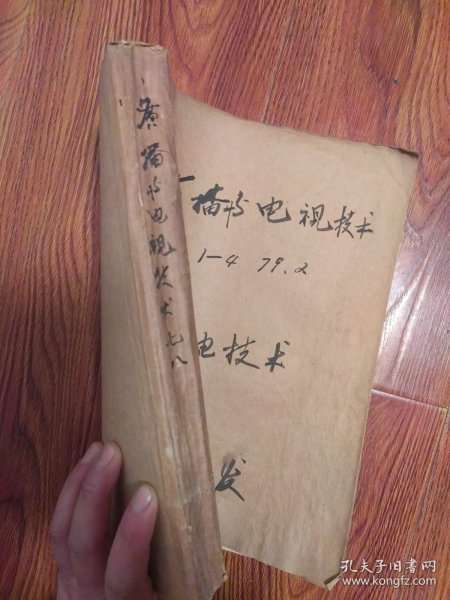 广播与电视技术七八
广播与电视技术
1-4 79.2
电技术
发
孔夫子旧书网
www.kongfz.com